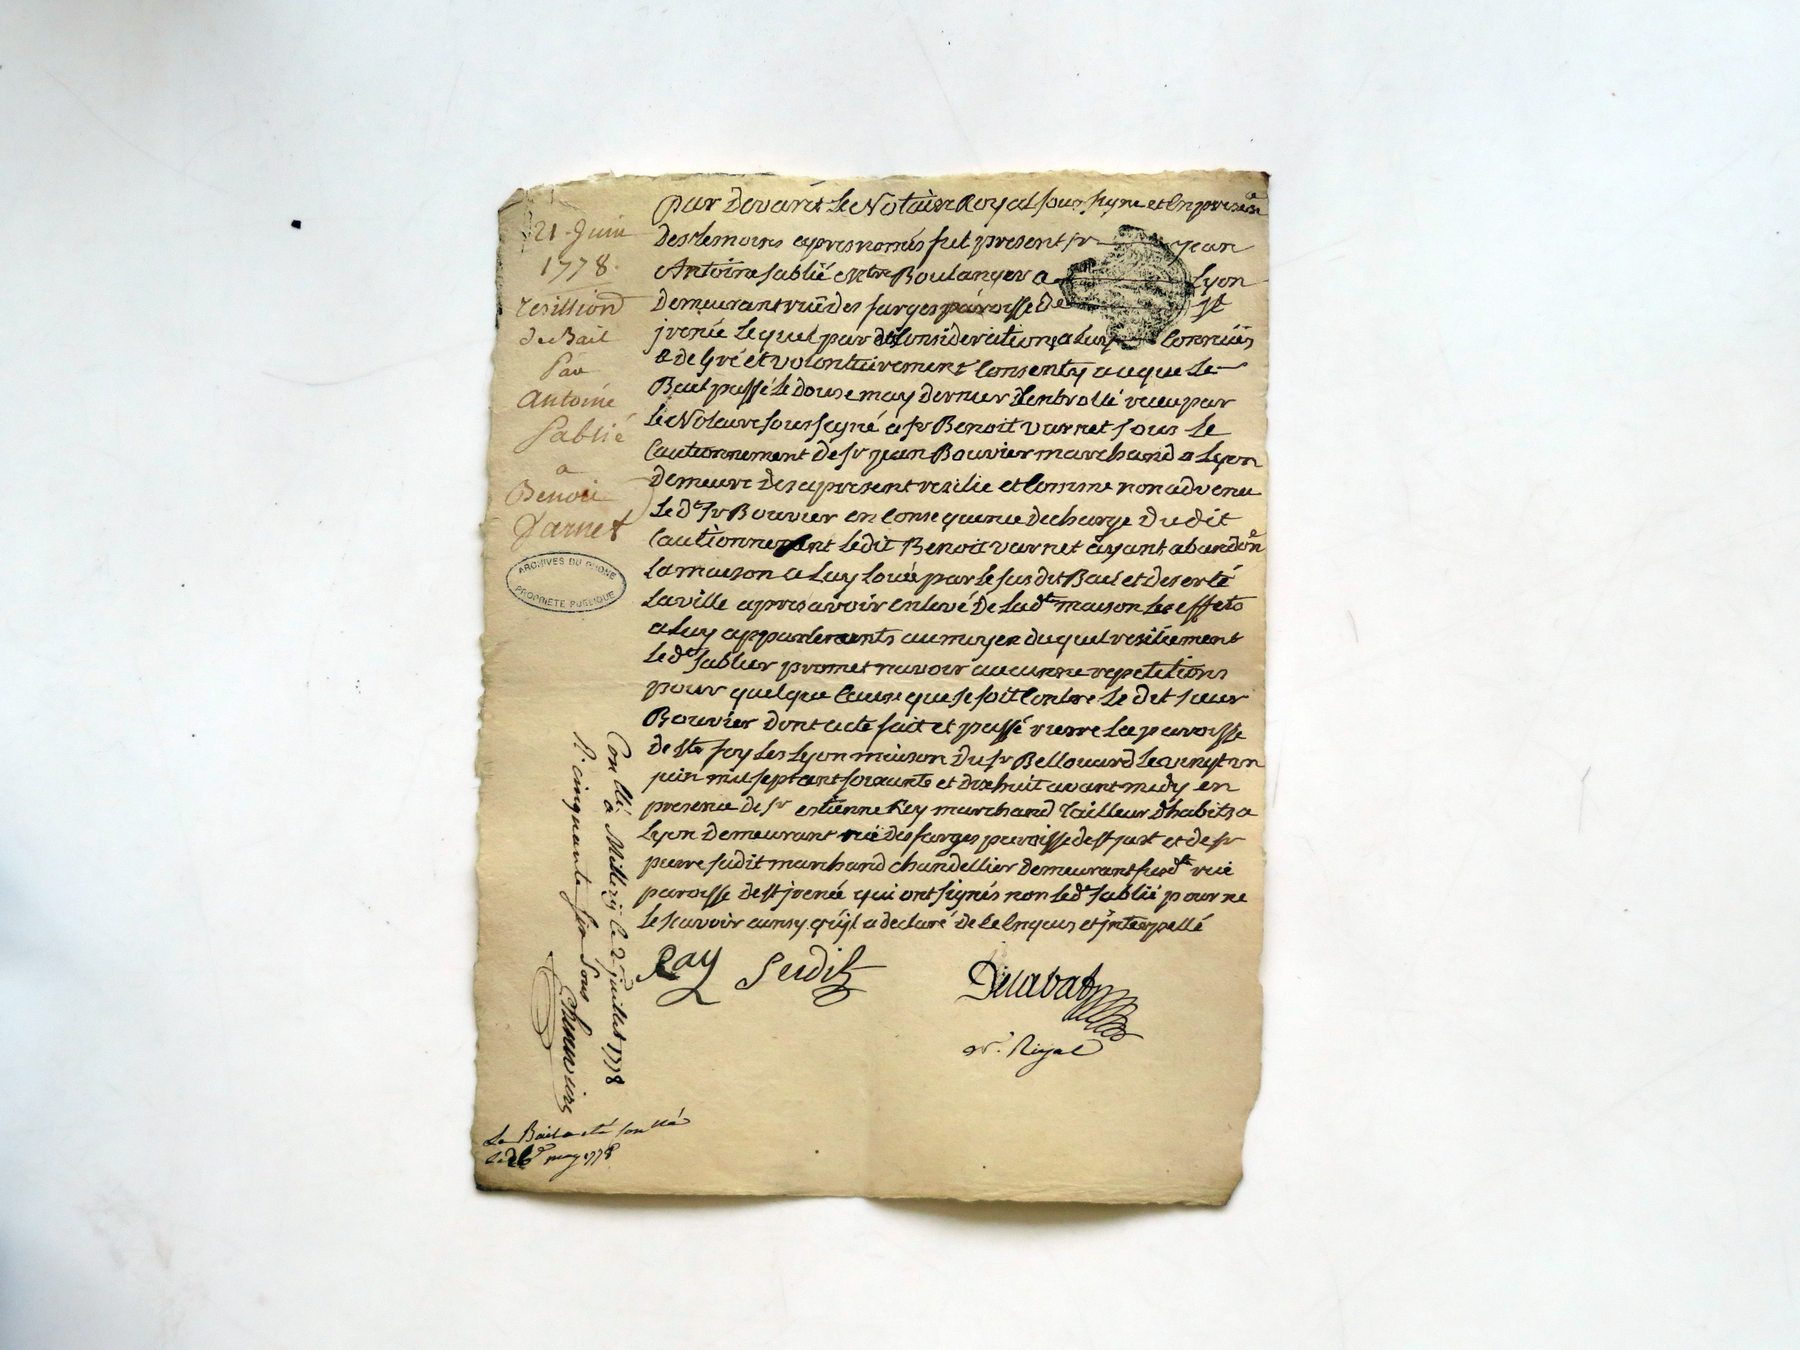 21 Juin
1778.
resillion
de Bail
Par
Antoine
Sablié
a
Benoit
Varnet
ARCHIVES DU RHONE
PROPRIETE PUBLIQUE
par devant Le Notaire Royal sous signe et En presence
Des temoins apres només fut present sr jean
Antoine Sablié mtre Boulanger a Lyon
Demeurant ruë des farges paroisse De st
jrenée Lequel par des Considerations a Luy Connuës
& de gré et volontairement Consenty a ce que Le
Bail passé Le douse may dernier Controllé receu par
Le Notaire soussigné a sr Benoit varnet sous Le
Cautionnement de sr jean Bouvier marchand a Lyon
Demeure des apresent resilie et Comme non advenu
Le dt sr Bouvier en Consequence decharge Du dit
Cautionnement Ledit Benoit varnet ayant abandoné
La maison a Luy Louée par Le susdit Bail et deserté
La ville apres avoir enlevé de Ladte maison Les effets
a Luy appartenants au moyen duquel resiliement
Le dt Sablier promet n'avoir aucunne repetitions
pour quelque Cause que se soit Contre Le dit sieur
Bouvier dont acte fait et passé rierre La paroisse
de ste foy Les Lyon maison Du sr Bellouard Le vingt un
juin mil sept cent soixante et dix huit avant midy en
presence de sr estienne Rey marchand Tailleur D'habits a
Lyon Demeurant rue des farges paroisse de st just et de sr
pierre sudit marchand chandellier demeurant susdte rue
paroisse de st jrenée qui ont signés non Le dt Sablié pour ne
Le scavoir ainsy qu'il a declaré de ce Enquis et jnterpellé
Ray Sudit
Delabat
nre Royal
Con llé a Millery le 2 juillet 1778
R. cinquante six sous
Le Bail a eté con llé
le 26 may 1778